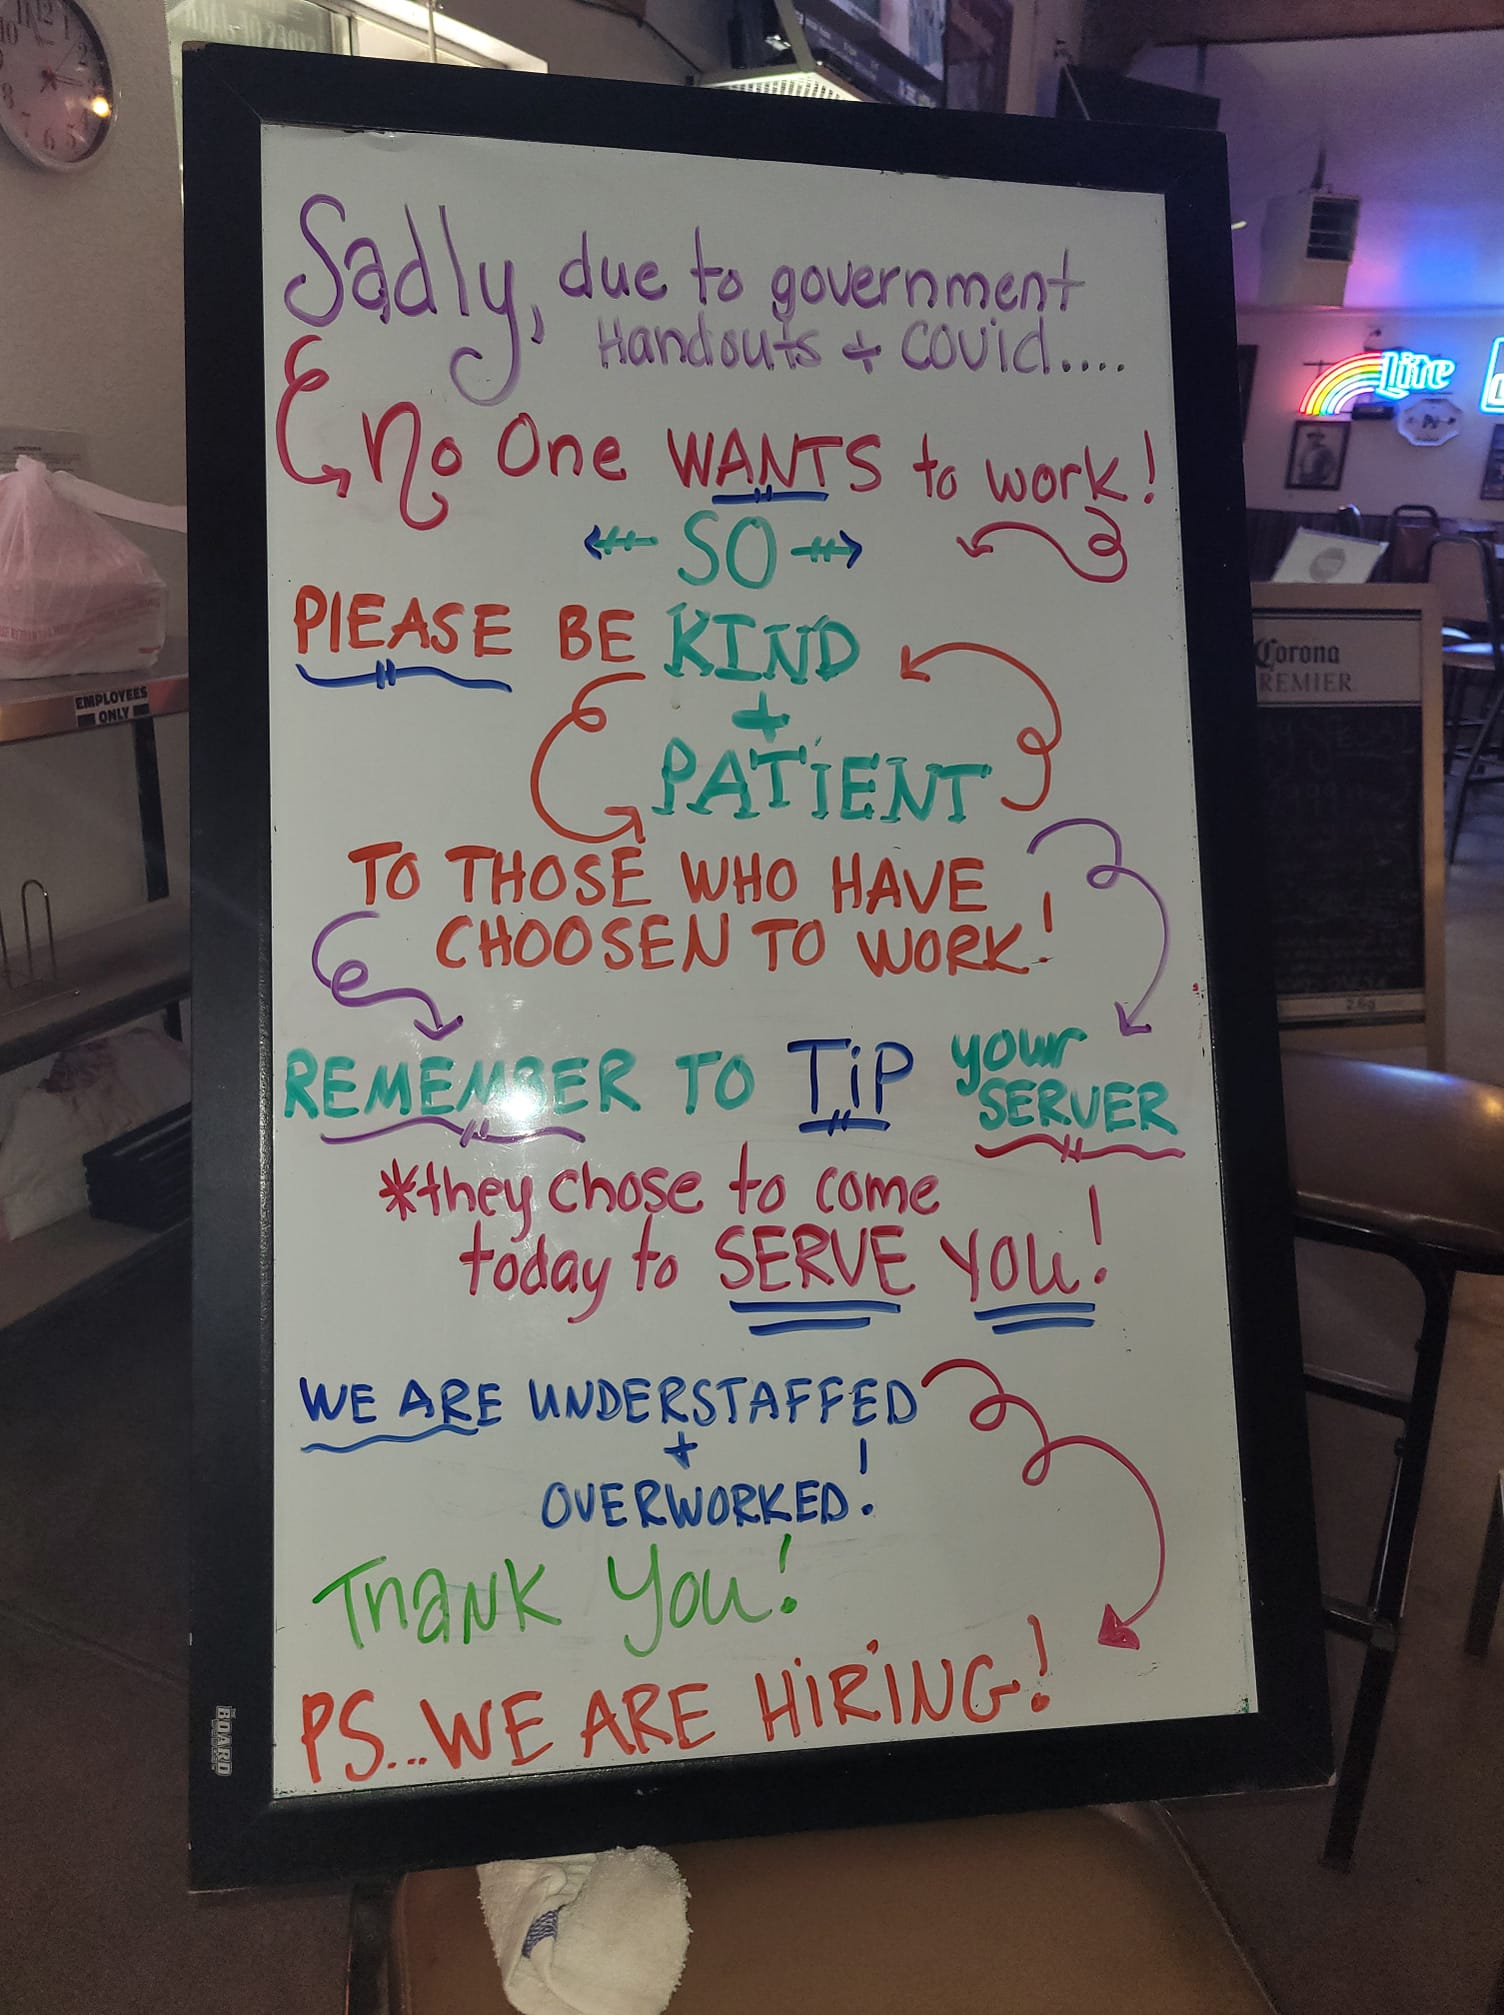 Sadly, due to government
Handouts + COVID....
No One WANTS to work!
SO
PLEASE BE KIND
+
PATIENT
TO THOSE WHO HAVE
CHOOSEN TO WORK!
REMEMBER TO TiP your
SERVER
*they chose to come
today to SERVE YOU!
WE ARE UNDERSTAFFED
+
OVERWORKED!
THANK YOU!
PS...WE ARE HiRiNG!
EMPLOYEES
ONLY
Lite
Corona
PREMIER
2.6g
BOARD